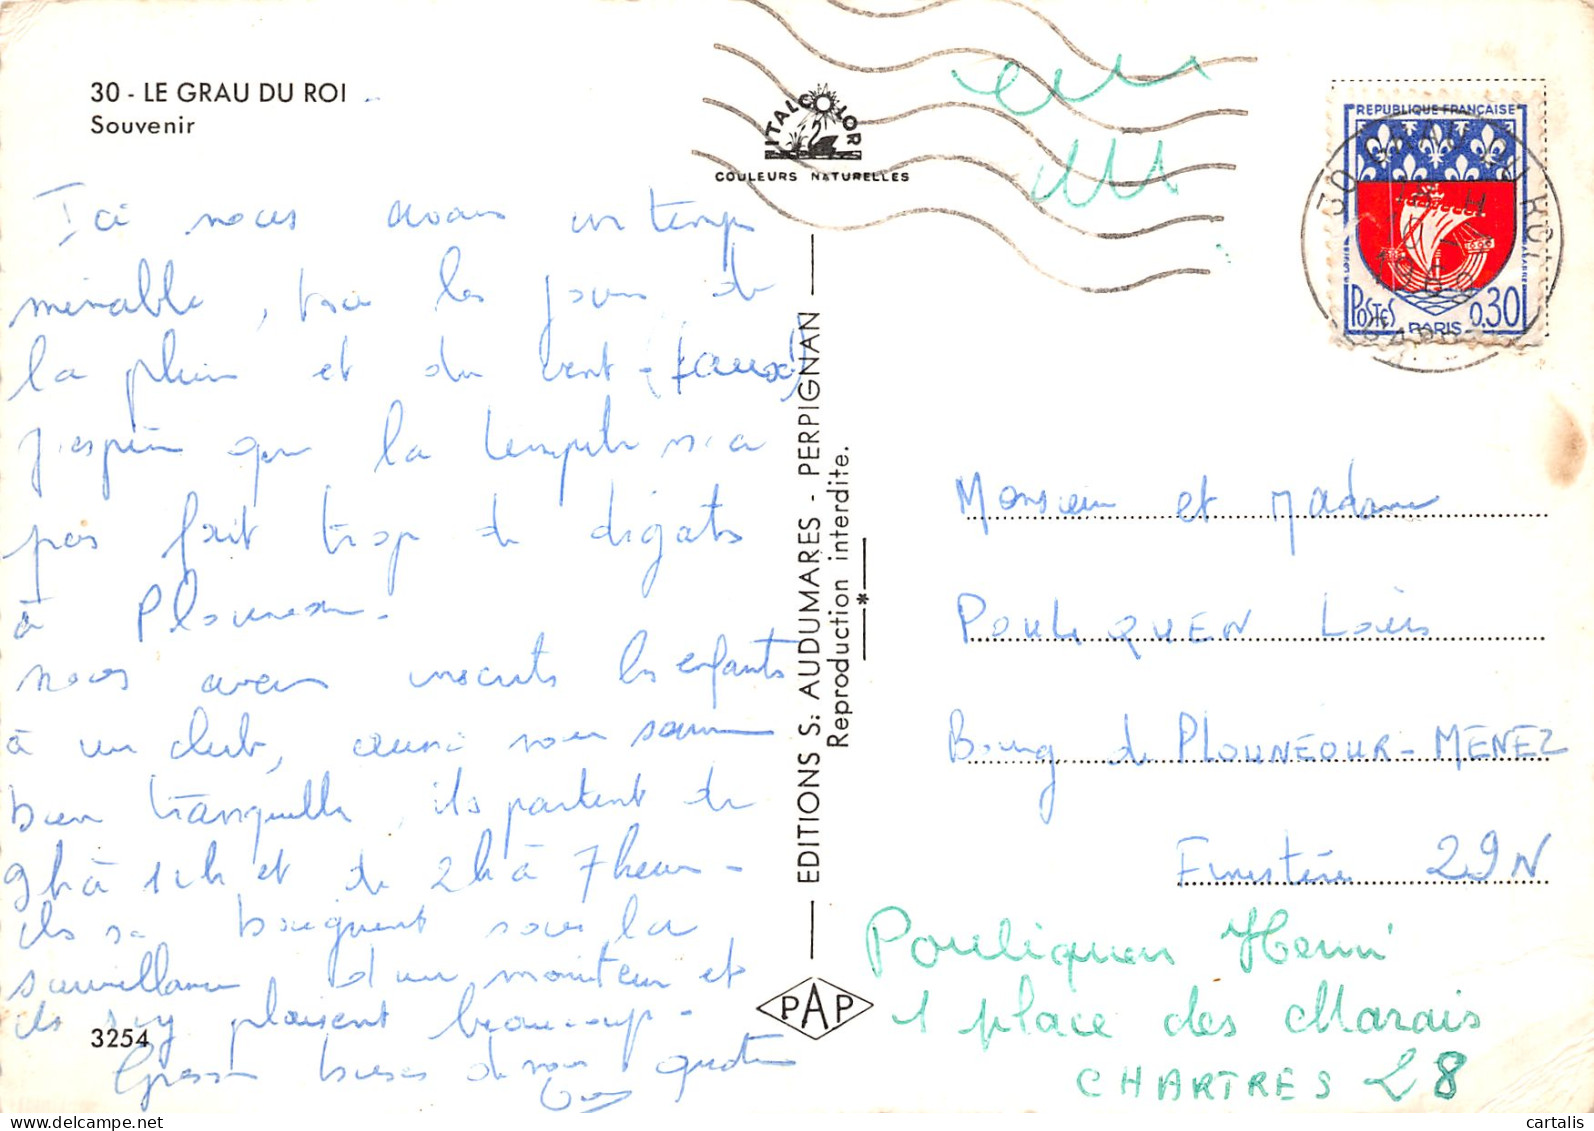 30 - LE GRAU DU ROI
Souvenir
Ici nous avons un temps
minable, tous les jours de
la pluie et du vent
j'espère que la tempête n'a
pas fait trop de dégats
à Plouneour.
nous avons inscrits les enfants
à un club, aussi nous sommes
bien tranquille, ils partent de
9h à 12h et de 2h à 7 heures
ils se baignent sous la
surveillance d'un moniteur et
ils s'y plaisent beaucoup.
3254
Grosses bises de nous quatre
ITALCOLOR
COULEURS NATURELLES
EDITIONS S. AUDUMARES - PERPIGNAN
Reproduction interdite.
PAP
REPUBLIQUE FRANÇAISE
POSTES
PARIS
0,30
30 GRAU DU ROI
Monsieur et Madame
POULIQUEN Louis
Bourg de PLOUNEOUR-MENEZ
Finistère 29N
Pouliquen Henri
1 place des Marais
CHARTRES 28
cartalis
www.cartalis.com